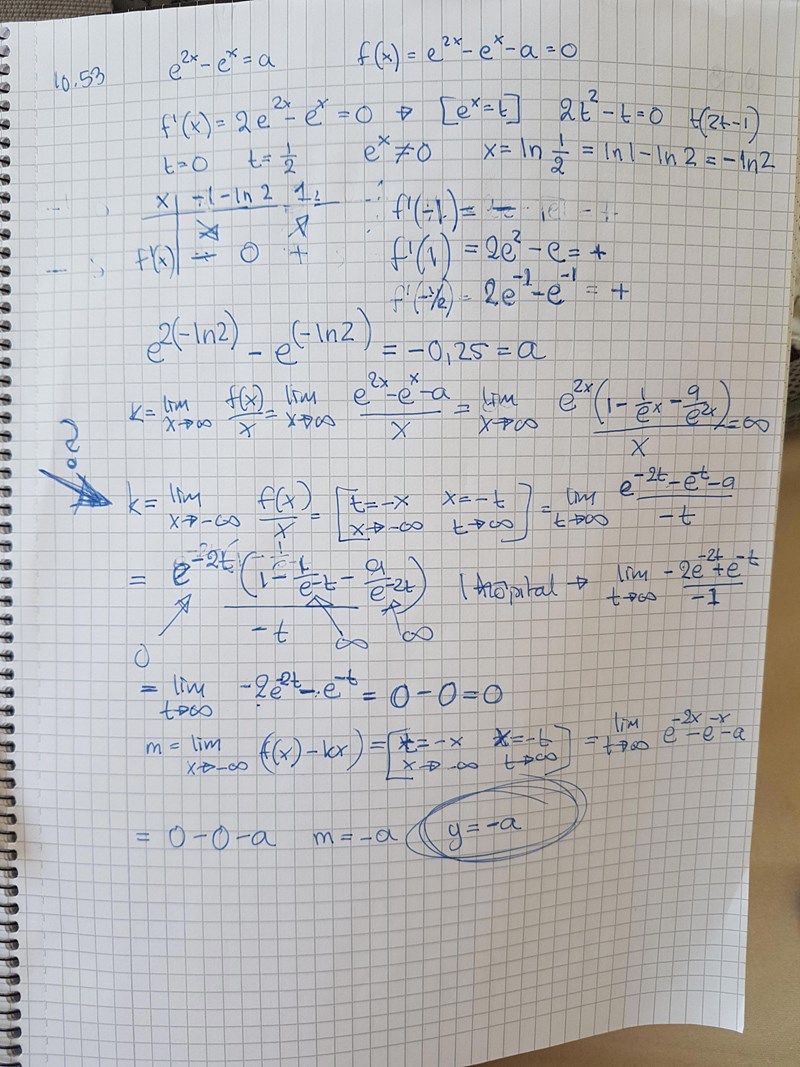 10.53 e^{2x} - e^x = a f(x) = e^{2x} - e^x - a = 0
f'(x) = 2e^{2x} - e^x = 0 → [e^x = t] 2t^2 - t = 0 t(2t-1)
t = 0 t = 1/2 e^x ≠ 0 x = ln 1/2 = ln1 - ln2 = -ln2
x ÷1 -ln2 1 f'(÷1) =
f'(x) ÷ 0 + f'(1) = 2e^2 - e = +
f'(-1/2) = 2e^{-1} - e^{-1} = +
e^{2(-ln2)} - e^{(-ln2)} = -0,25 = a
k = lim x→∞ f(x)/x = lim x→∞ (e^{2x} - e^x - a)/x = lim x→∞ e^{2x}(1 - 1/e^x - a/e^{2x})/x = ∞
k = lim x→-∞ f(x)/x = [t = -x x = -t x→-∞ t→∞] = lim t→∞ (e^{-2t} - e^{-t} - a)/-t
= e^{-2t}(1 - 1/e^{-t} - a/e^{-2t})/-t l'hôpital → lim t→∞ (-2e^{-2t} + e^{-t})/-1
0 ∞ ∞
= lim t→∞ -2e^{-2t} - e^{-t} = 0 - 0 = 0
m = lim x→-∞ (f(x) - kx) = [t = -x x = -t x→-∞ t→∞] = lim t→∞ e^{-2x} - e^{-x} - a
= 0 - 0 - a m = -a y = -a